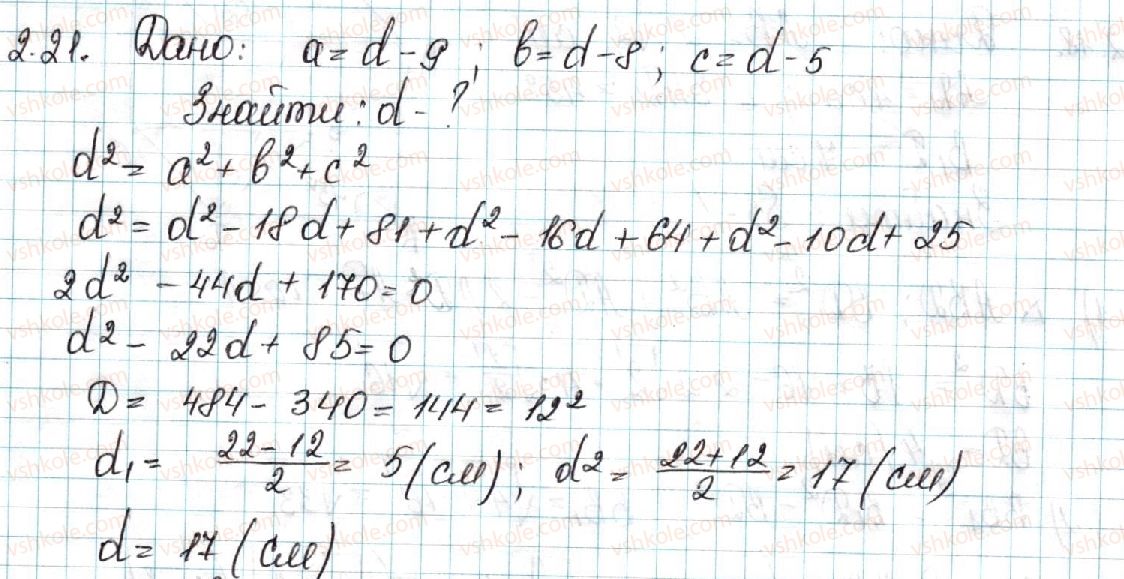 2.21. Дано: a = d - 9 ; b = d - 8 ; c = d - 5
Знайти: d - ?
d² = a² + b² + c²
d² = d² - 18d + 81 + d² - 16d + 64 + d² - 10d + 25
2d² - 44d + 170 = 0
d² - 22d + 85 = 0
D = 484 - 340 = 144 = 12²
d₁ = (22 - 12)/2 = 5 (см) ; d² = (22 + 12)/2 = 17 (см)
d = 17 (см)